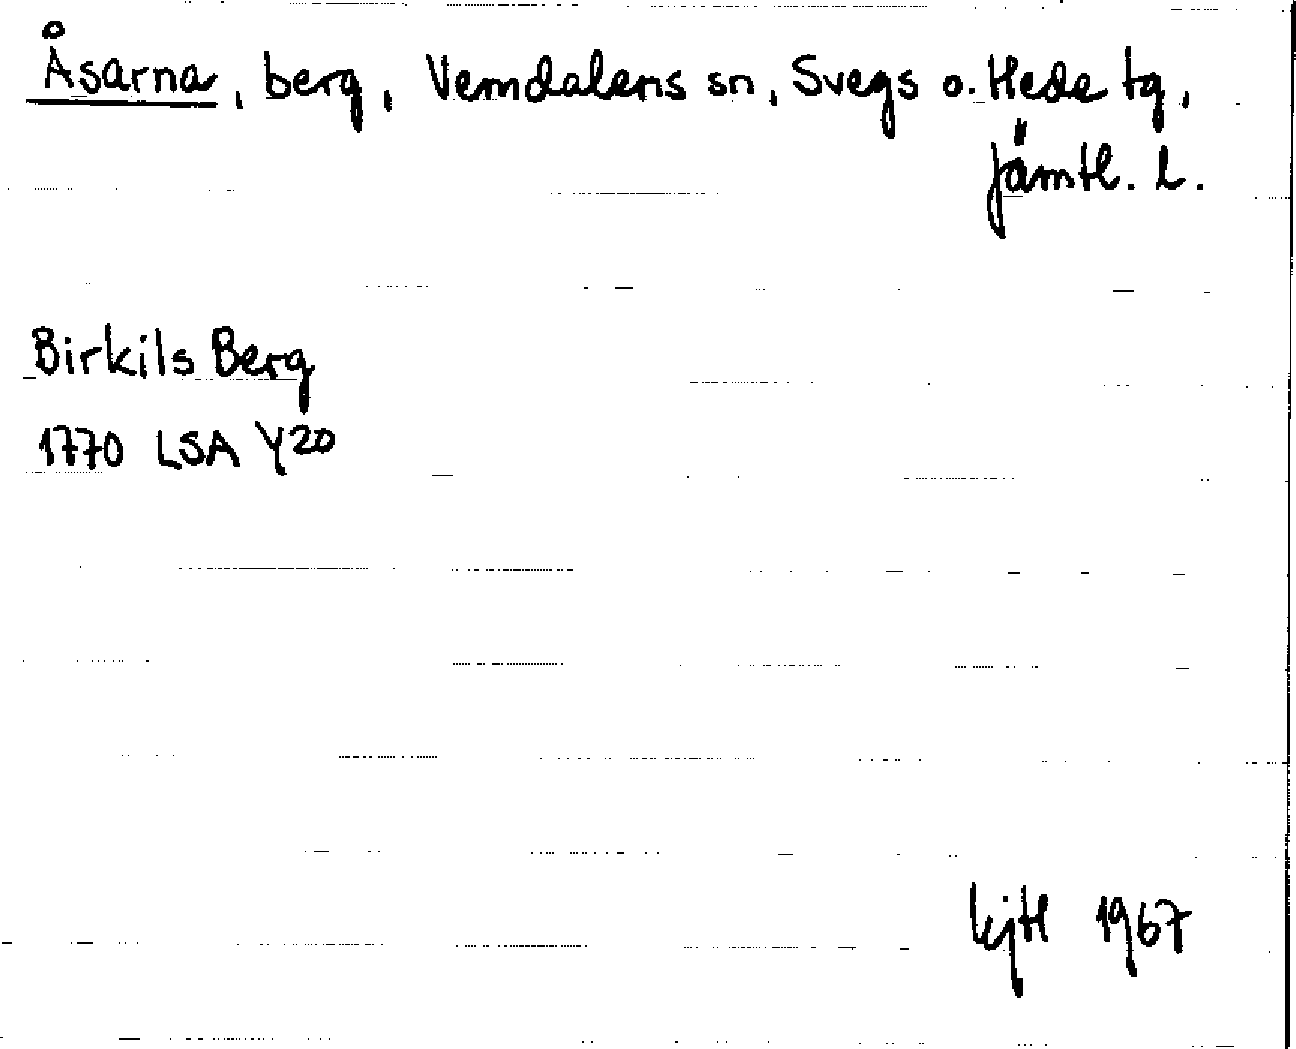 Åsarna, berg, Vemdalens sn, Svegs o. Hede tg,
Jämtl. L.
Birkils Berg
1770 LSA Y20
1967